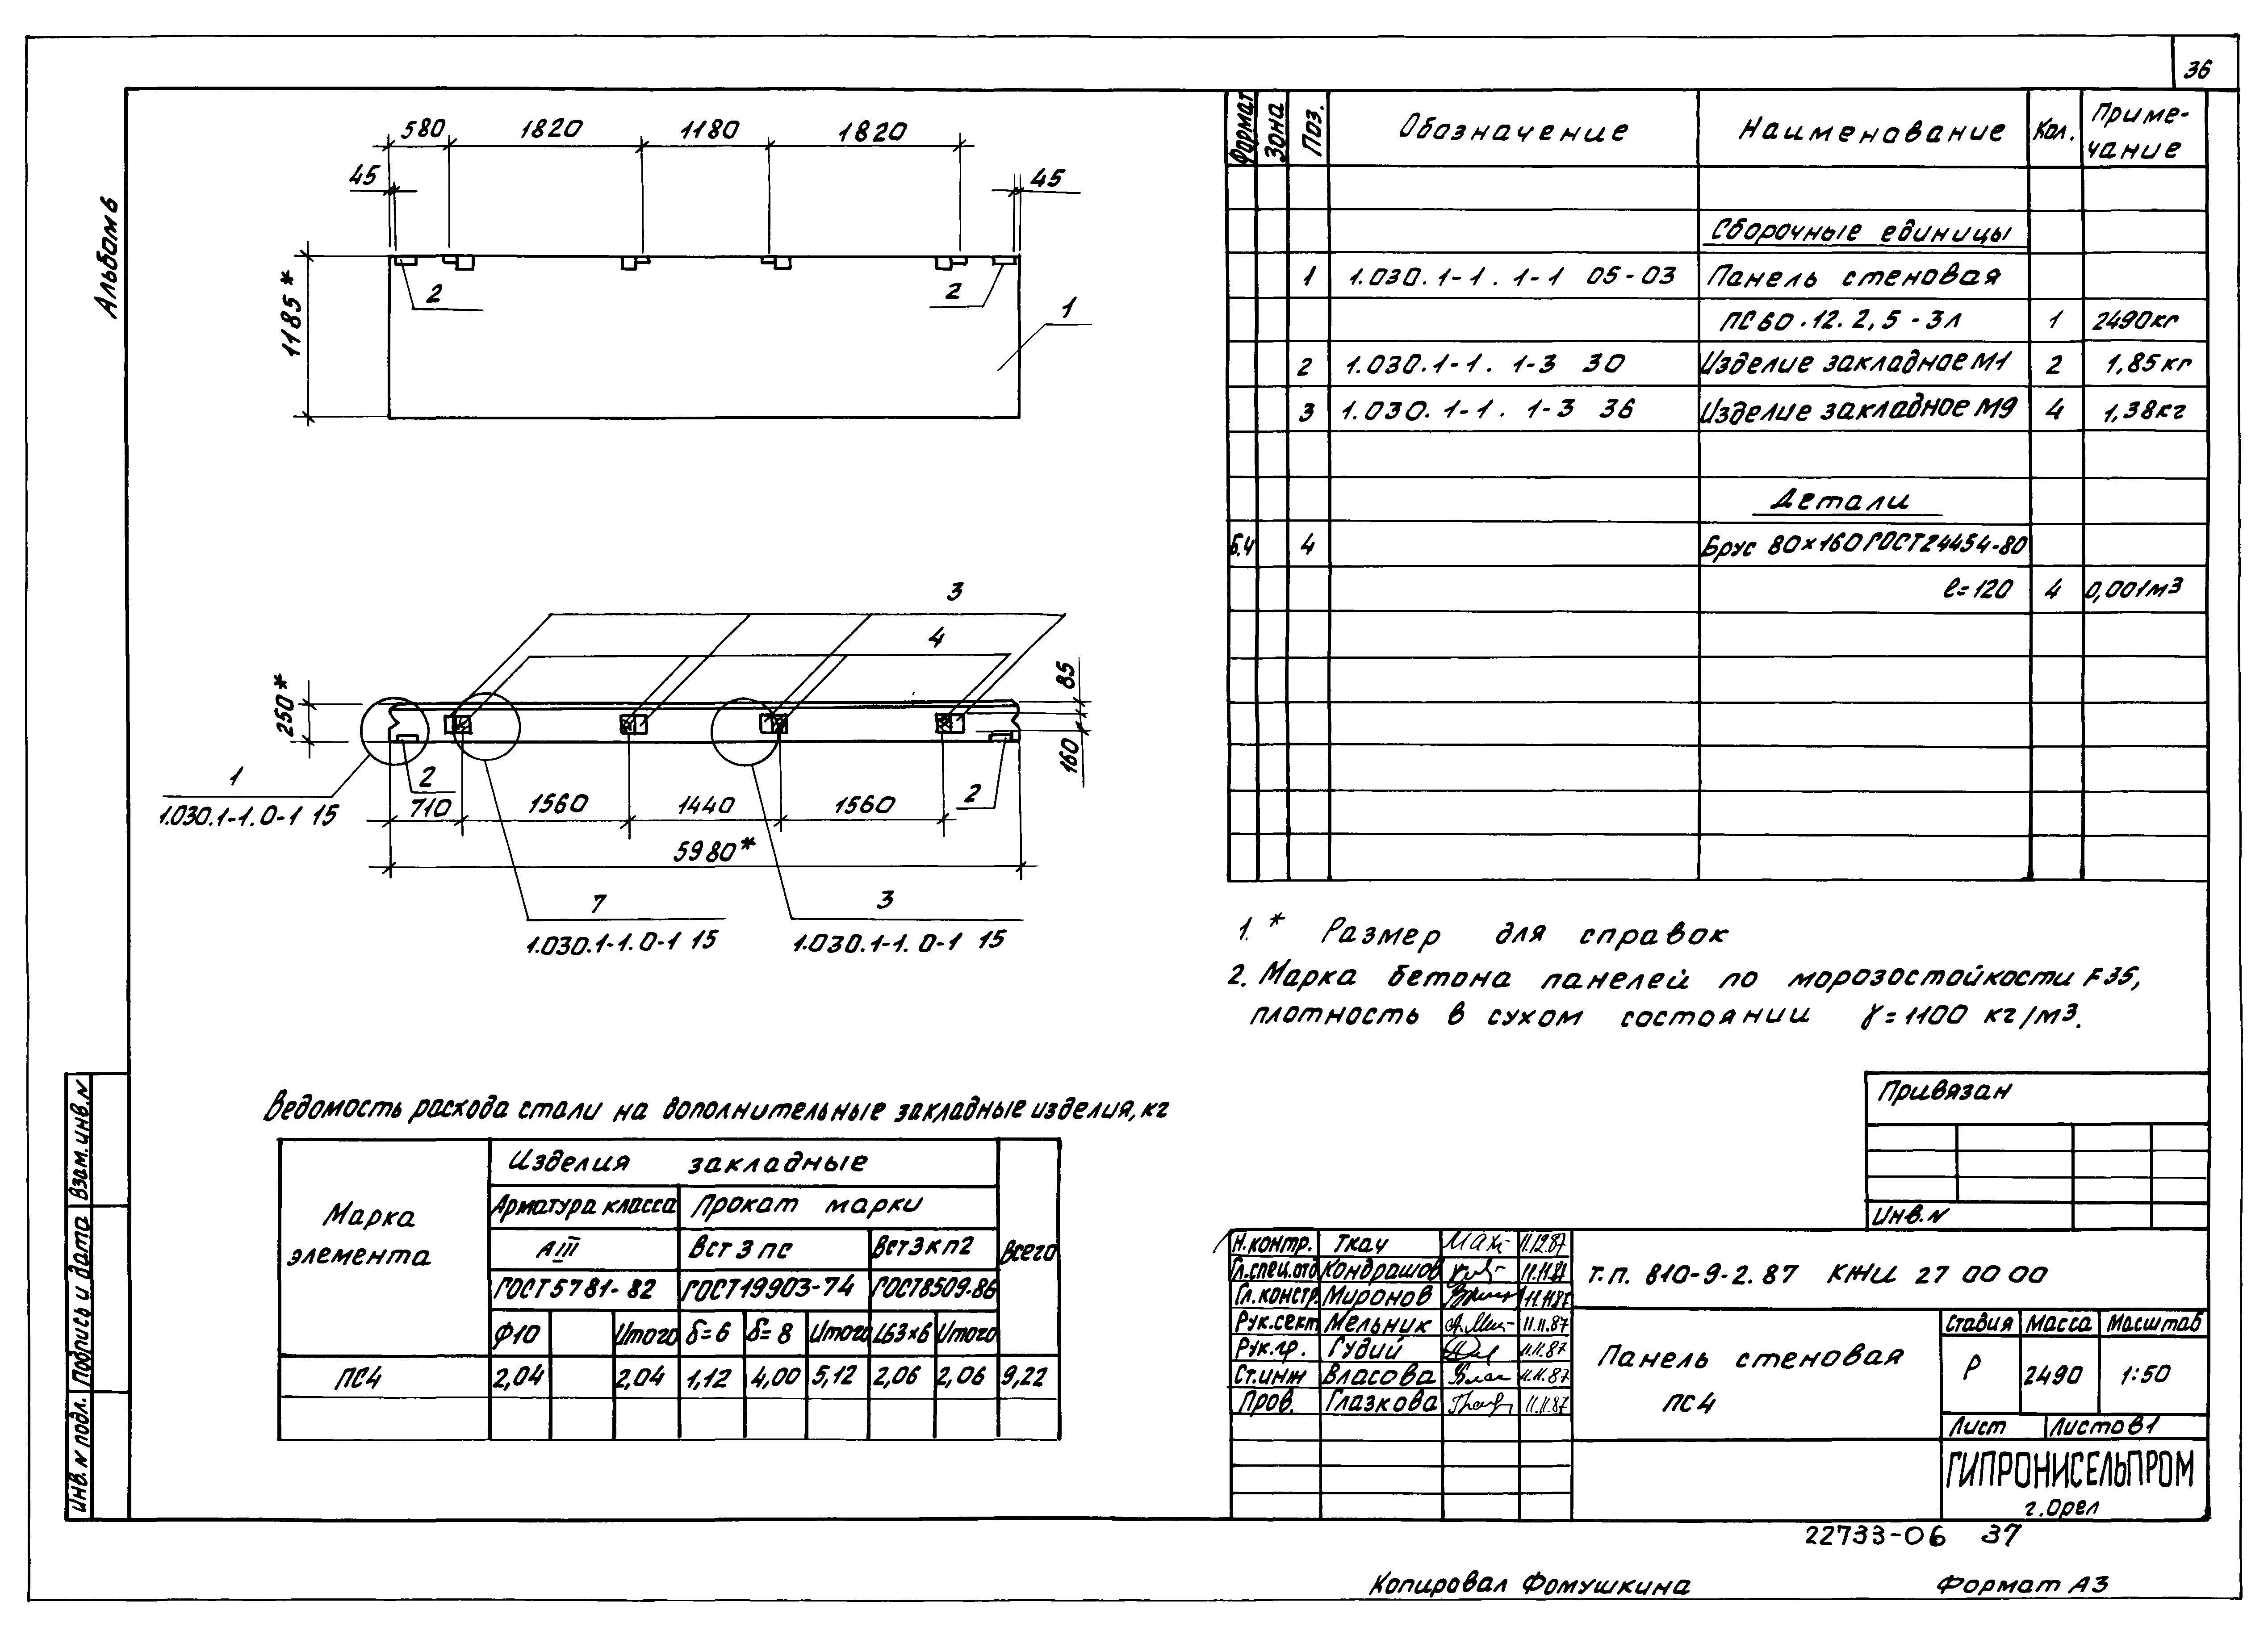 36
Альбом 6
580 1820 1180 1820
45 45
1185*
2 2 1
3
4
250* 85
160
1 2 2
1.030.1-1. 0-1 15
710 1560 1440 1560
5980*
7 3
1.030.1-1. 0-1 15 1.030.1-1. 0-1 15
Формат Зона Поз. Обозначение Наименование Кол. Приме-
чание
Сборочные единицы
1 1.030.1-1. 1-1 05-03 Панель стеновая
ПС60.12.2,5-3л 1 2490кг
2 1.030.1-1. 1-3 30 Изделие закладное М1 2 1,85кг
3 1.030.1-1. 1-3 36 Изделие закладное М9 4 1,38кг
Детали
Б.Ч 4 Брус 80×160 ГОСТ24454-80
ℓ=120 4 0,001м3
1. * Размер для справок
2. Марка бетона панелей по морозостойкости F35,
плотность в сухом состоянии γ=1100 кг/м3.
Ведомость расхода стали на дополнительные закладные изделия, кг
Марка
элемента
Изделия закладные
Всего
Арматура класса Прокат марки
АIII ВСт3пс ВСт3кп2
ГОСТ5781-82 ГОСТ19903-74 ГОСТ8509-86
Ф10 Итого δ=6 δ=8 Итого L63×6 Итого
ПС4 2,04 2,04 1,12 4,00 5,12 2,06 2,06 9,22
Привязан
Инв.N
Н.контр. Ткач 11.12.87
Гл.спец.отд Кондрашов 11.11.87
Гл.констр. Миронов 11.11.87
Рук.сект Мельник 11.11.87
Рук.гр. Гудий 11.11.87
Ст.инж Власова 11.11.87
Пров. Глазкова 11.11.87
т.п. 810-9-2.87 КЖИ 27 00 00
Панель стеновая
ПС4
Стадия Масса Масштаб
Р 2490 1:50
Лист Листов 1
ГИПРОНИСЕЛЬПРОМ
г.Орел
Инв. N подл. Подпись и дата Взам.инв.N
22733-06 37
Копировал Фомушкина Формат А3